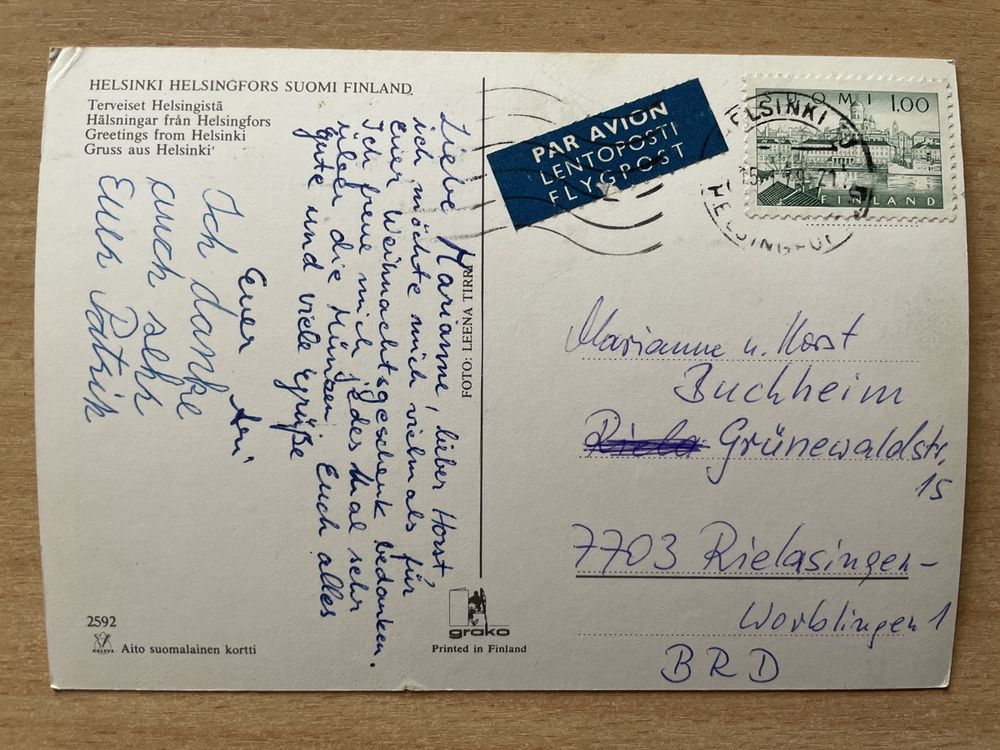 HELSINKI HELSINGFORS SUOMI FINLAND
Terveiset Helsingistä
Hälsningar från Helsingfors
Greetings from Helsinki
Gruss aus Helsinki
Liebe Marianne, lieber Horst
ich möchte mich vielmals für
euer Weihnachtsgeschenk bedanken.
Ich freue mich jedes Mal sehr
über die Münzen. Euch alles
gute und viele Grüße
Euer Ari
Ich danke
auch sehr
Euer Patrik
2592
Aito suomalainen kortti
FOTO: LEENA TIRRI
grako
Printed in Finland
PAR AVION
LENTOPOSTI
FLYGPOST
SUOMI 1,00
FINLAND
HELSINKI
HELSINGFORS
Marianne u. Horst
Buchheim
Riela Grünewaldstr.
15
7703 Rielasingen-
Worblingen 1
BRD